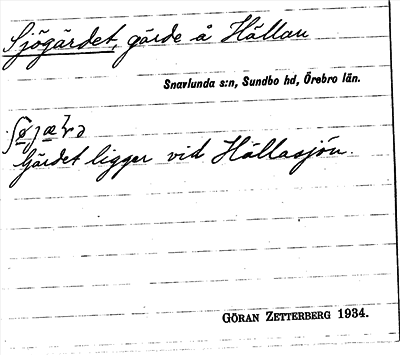 Sjögärdet, gärde å Hällan
Snavlunda s:n, Sundbo hd, Örebro län.
Gärdet ligger vid Hällasjön.
GÖRAN ZETTERBERG 1934.